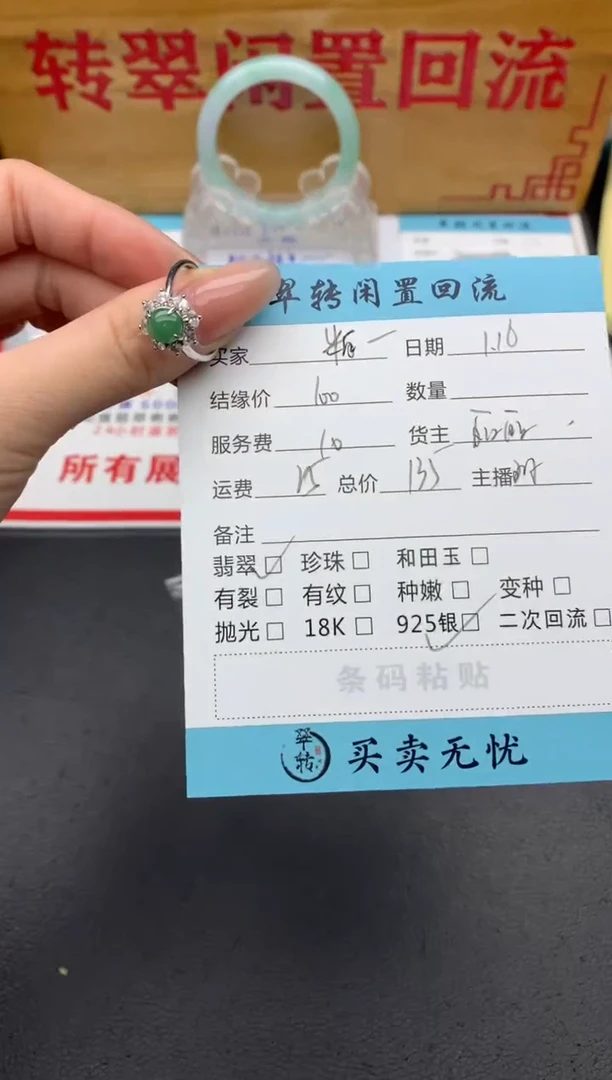 转翠闲置回流
翠转闲置回流
买家 日期 1.16
结缘价 100 数量
服务费 10 货主
运费 25 总价 135 主播
备注
翡翠 珍珠 和田玉
有裂 有纹 种嫩 变种
抛光 18K 925银 二次回流
条码粘贴
翠转
买卖无忧
所有展